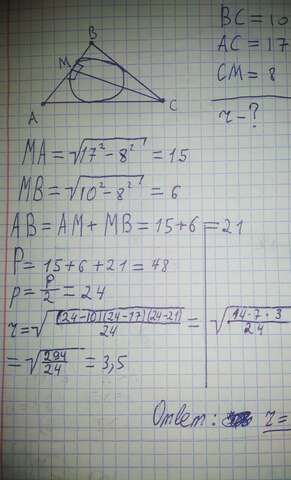 B
M
A
C
BC = 10
AC = 17
CM = 8
r - ?
MA = √17² - 8² = 15
MB = √10² - 8² = 6
AB = AM + MB = 15 + 6 = 21
P = 15 + 6 + 21 = 48
p = P/2 = 24
r = √(24-10)(24-17)(24-21)/24 = √14·7·3/24
= √294/24 = 3,5
Ответ: r =